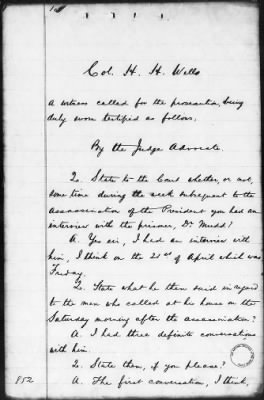 Col. H. H. Wells
a witness called for the prosecution, being
duly sworn testified as follows.
By the Judge Advocate.
Q. State to the Court whether, or not,
some time during the week subsequent to the
assassination of the President you had an
interview with the prisoner, Dr Mudd?
A. Yes sir, I had an interview with
him, I think on the 21st of April which was
Friday.
Q. State what he then said in regard
to the men who called at his house on the
Saturday morning after the assassination?
A. I had three definite conversations
with him.
Q. State them, if you please?
A. The first conversation, I think,
852